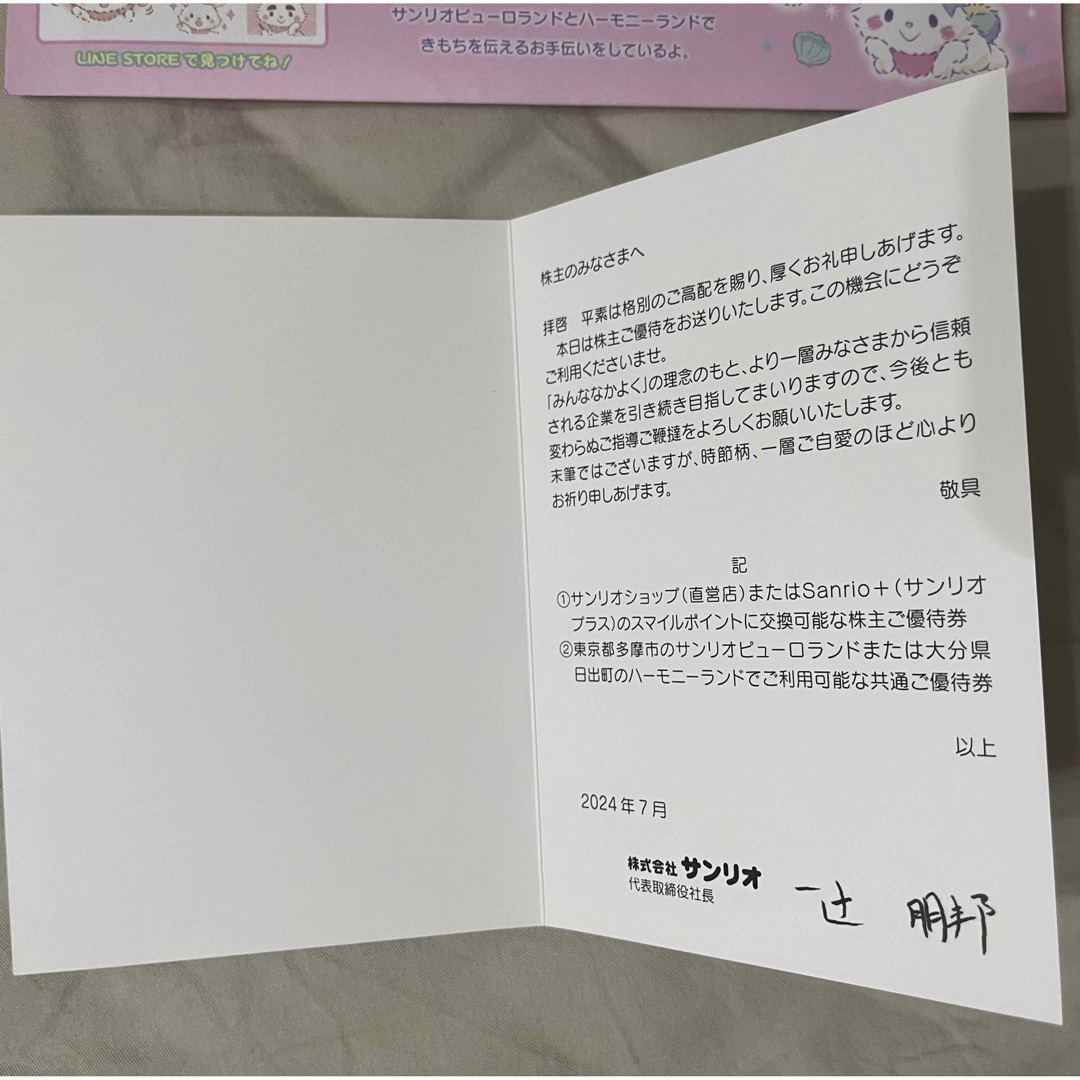 サンリオピューロランドとハーモニーランドで
きもちを伝えるお手伝いをしているよ。
LINE STOREで見つけてね！
株主のみなさまへ
拝啓　平素は格別のご高配を賜り、厚くお礼申しあげます。
本日は株主ご優待をお送りいたします。この機会にどうぞ
ご利用くださいませ。
「みんななかよく」の理念のもと、より一層みなさまから信頼
される企業を引き続き目指してまいりますので、今後とも
変わらぬご指導ご鞭撻をよろしくお願いいたします。
末筆ではございますが、時節柄、一層ご自愛のほど心より
お祈り申しあげます。
敬具
記
①サンリオショップ（直営店）またはSanrio＋（サンリオ
プラス）のスマイルポイントに交換可能な株主ご優待券
②東京都多摩市のサンリオピューロランドまたは大分県
日出町のハーモニーランドでご利用可能な共通ご優待券
以上
2024年7月
株式会社 サンリオ
代表取締役社長
辻 朋邦